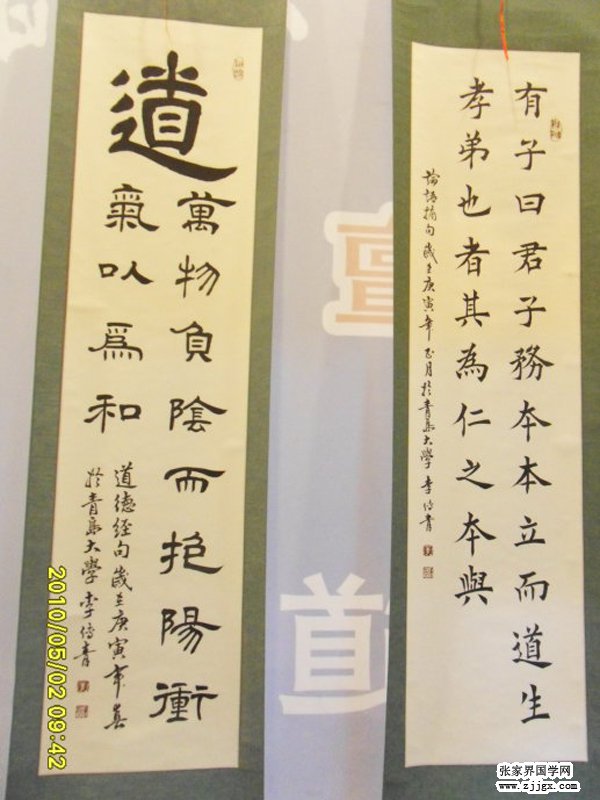 有子曰君子務本本立而道生
孝弟也者其為仁之本與
論語摘句歲至庚寅年正月於青島大學李
道
萬物負陰而抱陽衝
氣以爲和
道德經句歲至庚寅年春
於青島大學李
道
2010/05/02 09:42
张家界国学网
www.zjjgx.com